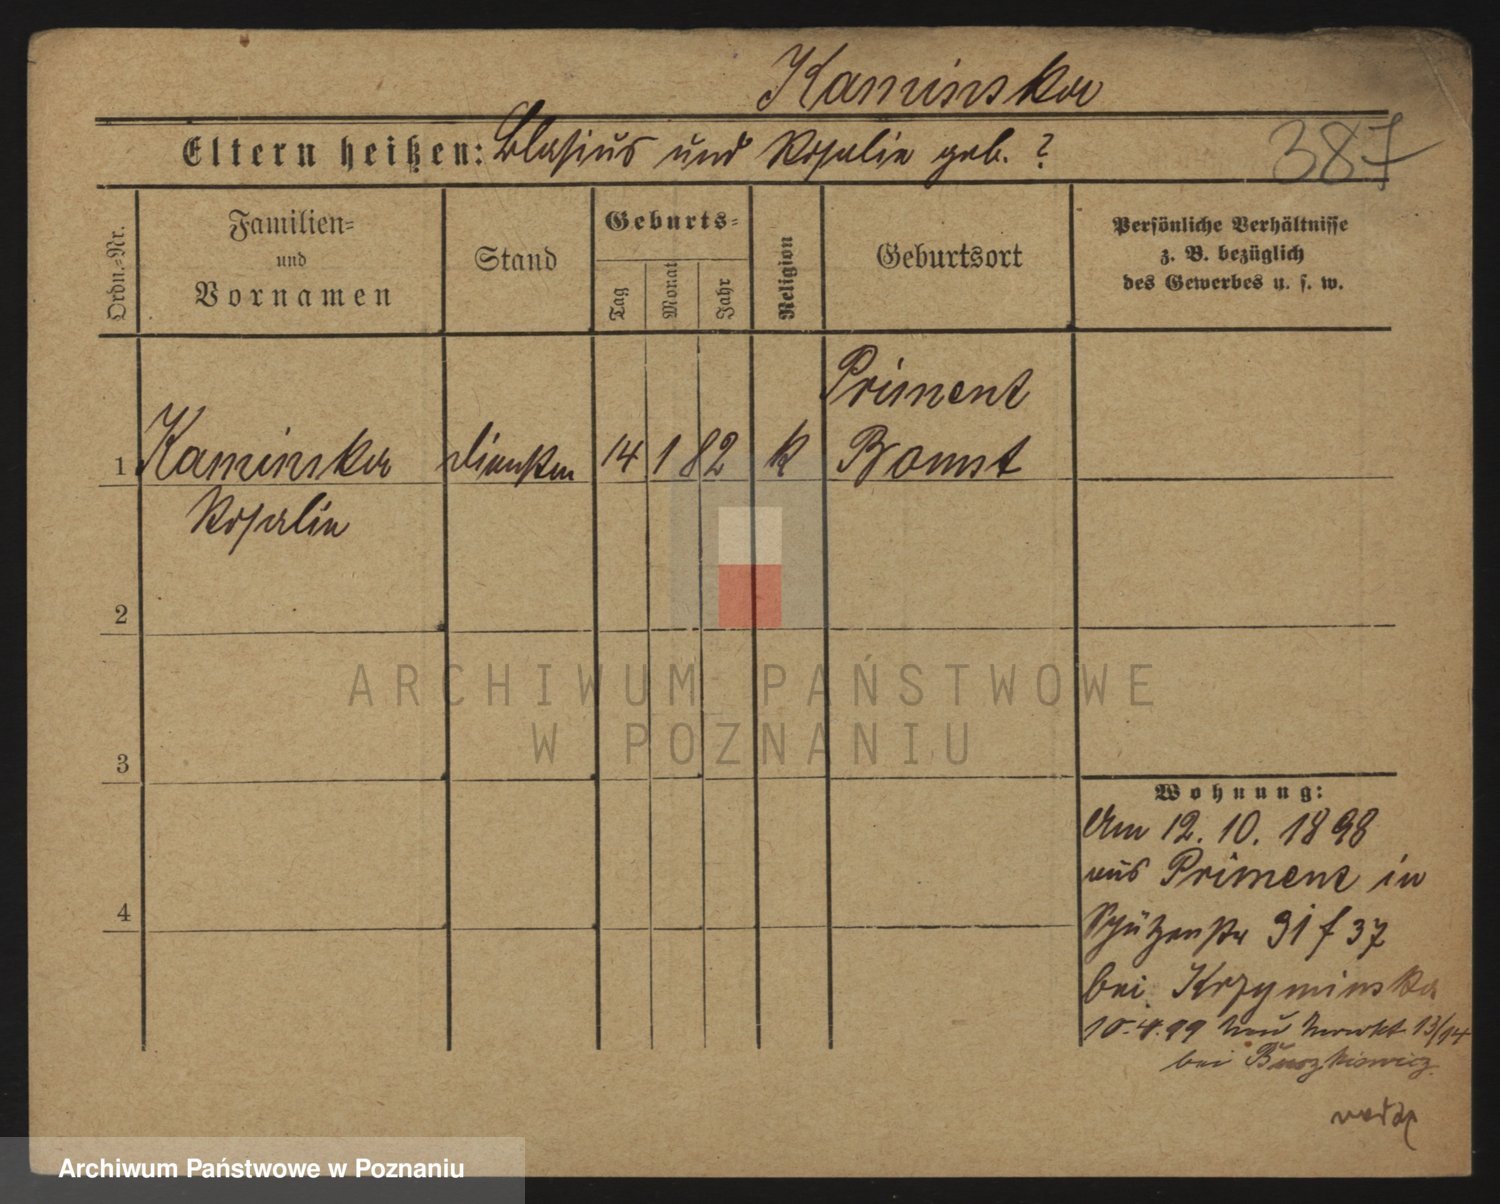 Kaminska
Eltern heißen: Blasius und Rosalie geb. ?
387
Ordn.-Nr.
Familien-
und
Vornamen
Stand
Geburts-
Tag
Monat
Jahr
Religion
Geburtsort
Persönliche Verhältnisse
z. B. bezüglich
des Gewerbes u. s. w.
Priment
1 Kaminska 14 1 82 k Bomst
Rosalie
2
3
4
Wohnung:
Am 12. 10. 1898
aus Priment in
Schützenstr 31 f 37
bei Krzyminska
10.4.99 Neu Markt 13/14
bei
ARCHIWUM PAŃSTWOWE
W POZNANIU
Archiwum Państwowe w Poznaniu